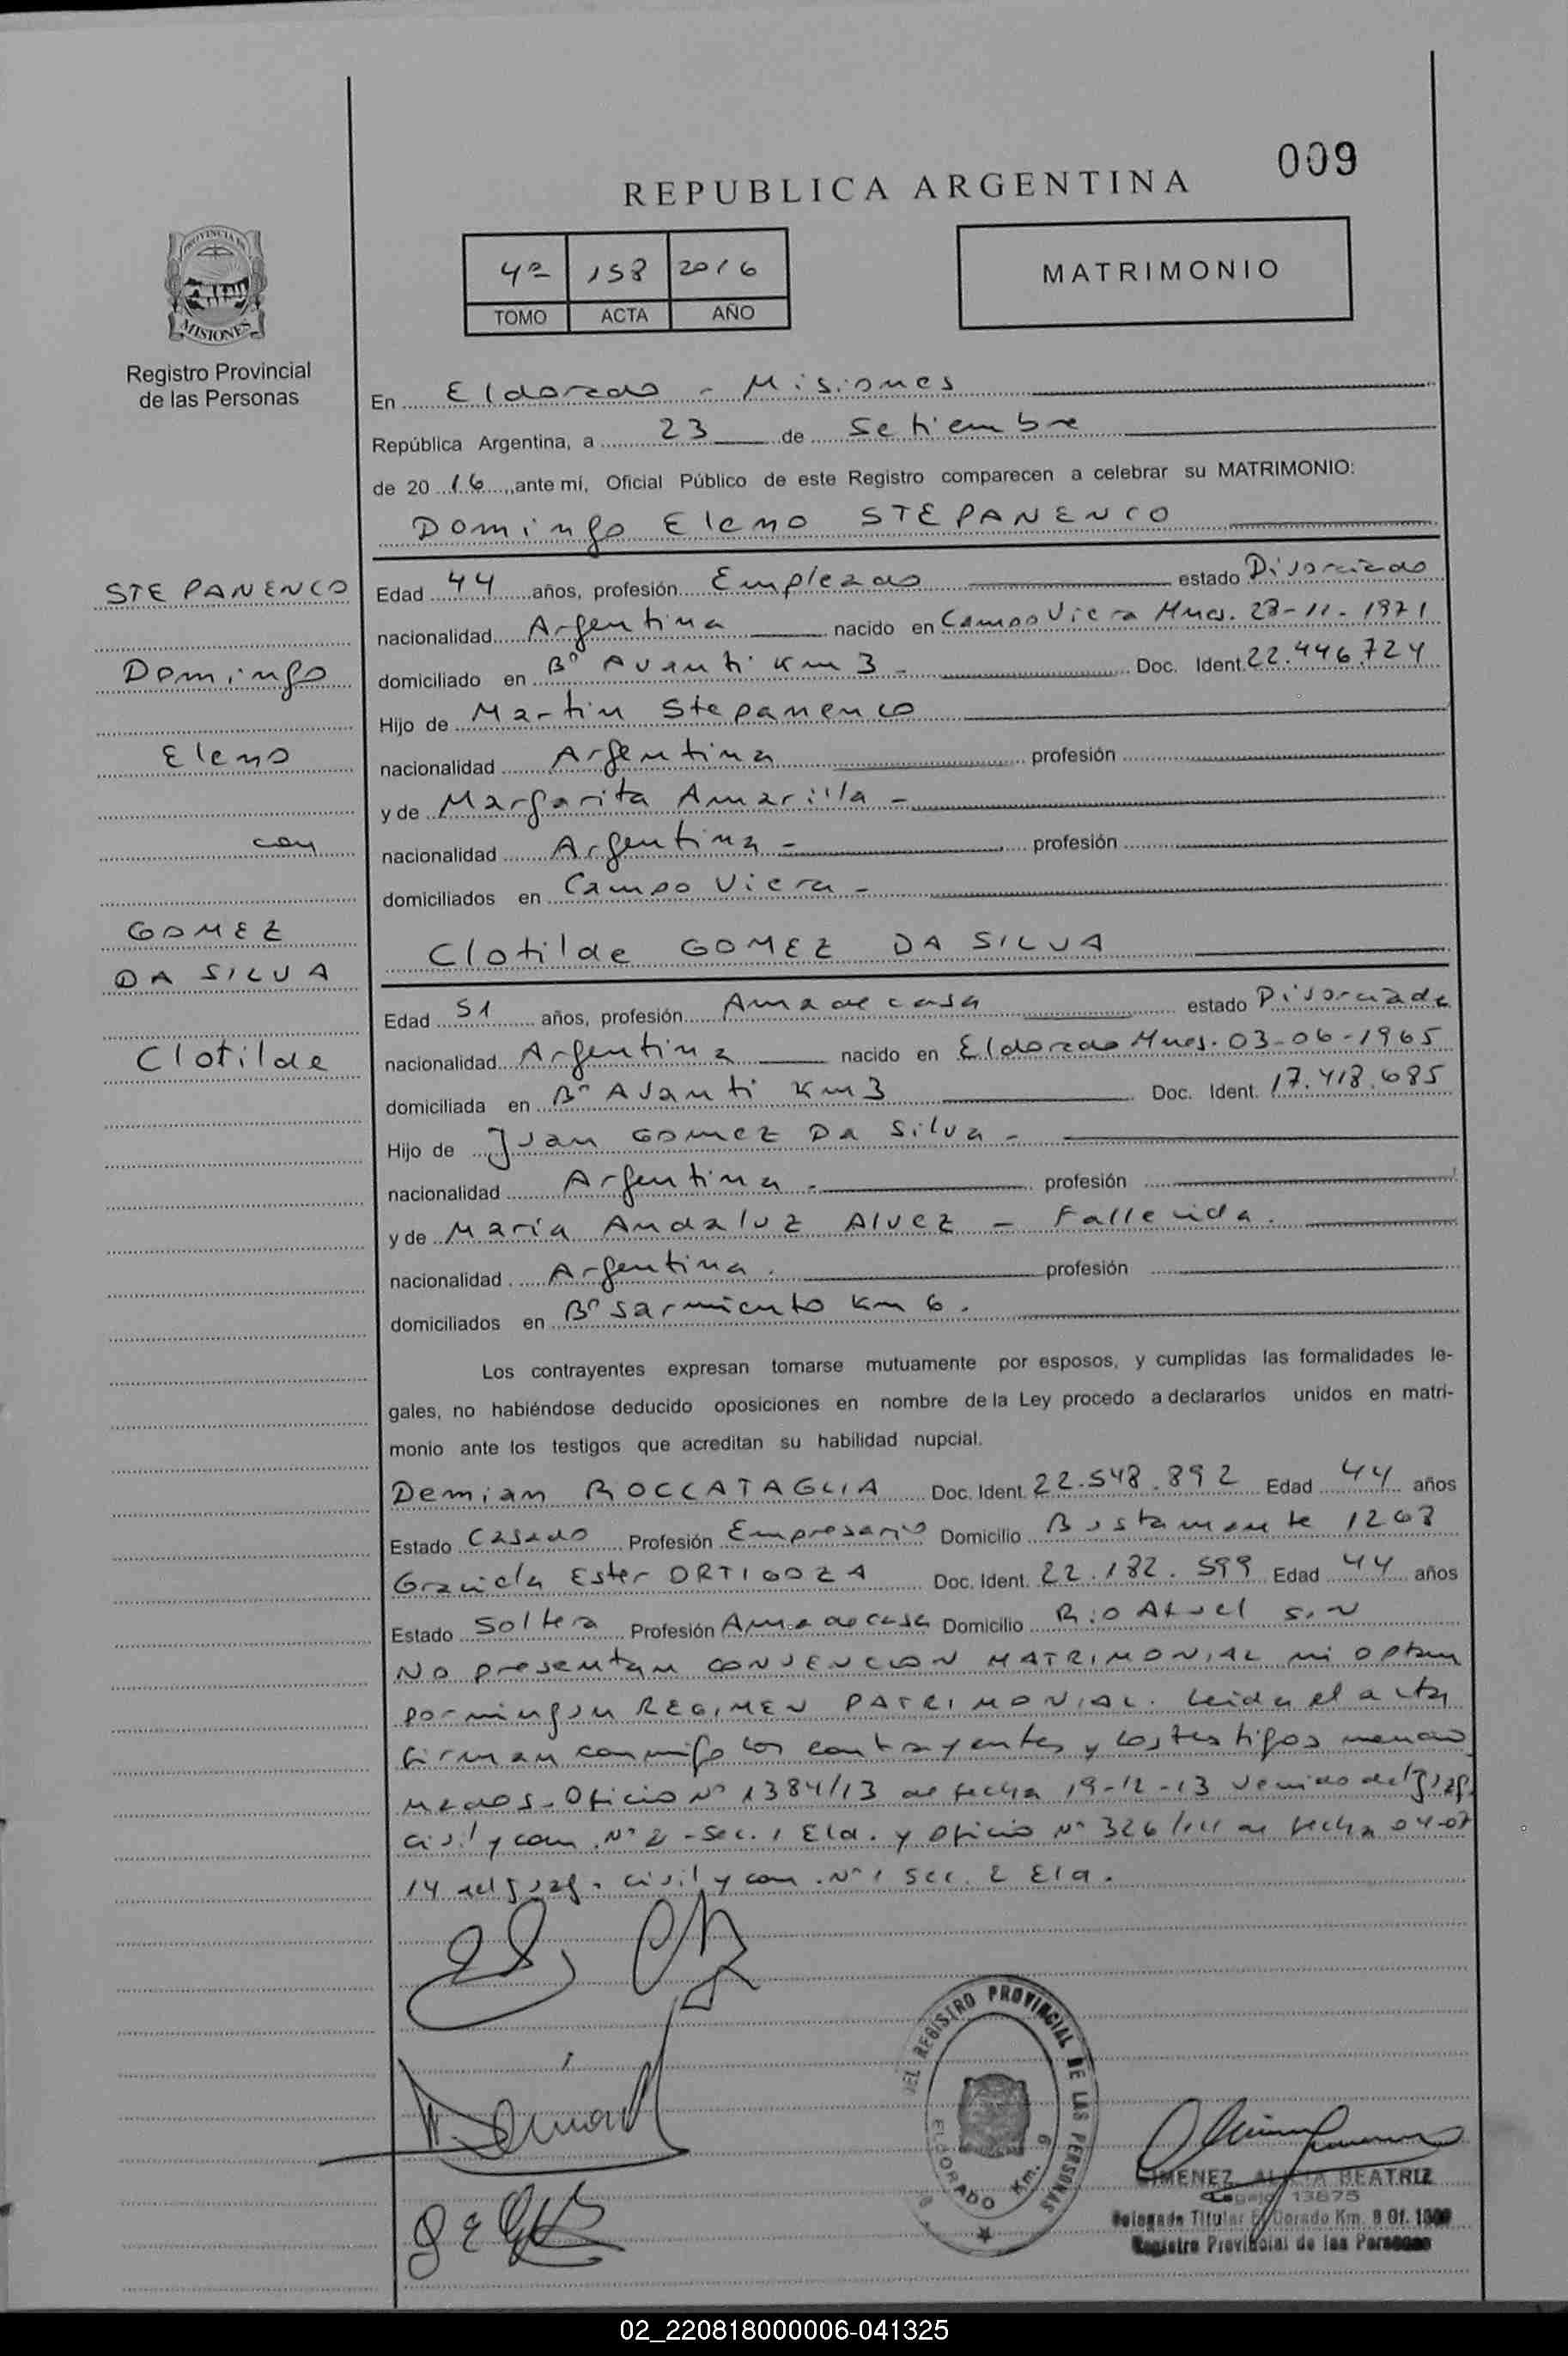 009
REPUBLICA ARGENTINA
PROVINCIA DE
MISIONES
Registro Provincial
de las Personas
4º 158 2016
TOMO ACTA AÑO
MATRIMONIO
En Eldorado - Misiones
República Argentina, a 23 de Setiembre
de 2016, ante mí, Oficial Público de este Registro comparecen a celebrar su MATRIMONIO:
Domingo Eleno STEPANENCO
STEPANENCO
Domingo
Eleno
con
GOMEZ
DA SILVA
Clotilde
Edad 44 años, profesión Empleado estado Divorciado
nacionalidad Argentina nacido en Campo Viera Mnes. 28-11-1971
domiciliado en Bº Avanti Km 3 - Doc. Ident. 22.446.724
Hijo de Martin Stepanenco
nacionalidad Argentina profesión
y de Margarita Amarilla -
nacionalidad Argentina - profesión
domiciliados en Campo Viera -
Clotilde GOMEZ DA SILVA
Edad 51 años, profesión Ama de casa estado Divorciada
nacionalidad Argentina nacido en Eldorado Mnes. 03-06-1965
domiciliada en Bº Avanti Km 3 Doc. Ident. 17.418.685
Hijo de Juan Gomez Da Silva -
nacionalidad Argentina - profesión
y de María Andaluz Alvez - Fallecida.
nacionalidad Argentina. profesión
domiciliados en Bº Sarmiento Km 6.
Los contrayentes expresan tomarse mutuamente por esposos, y cumplidas las formalidades le-
gales, no habiéndose deducido oposiciones en nombre de la Ley procedo a declararlos unidos en matri-
monio ante los testigos que acreditan su habilidad nupcial.
Demian ROCCATAGLIA Doc. Ident. 22.548.892 Edad 44 años
Estado Casado Profesión Empresario Domicilio Bustamante 1268
Graciela Ester ORTIGOZA Doc. Ident. 22.182.599 Edad 44 años
Estado Soltera Profesión Ama de casa Domicilio Rio Atuel S.N
No presentan CONVENCION MATRIMONIAL ni optan
por ningun REGIMEN PATRIMONIAL. Leida el acta
firman conmigo los contrayentes y los testigos mencio
nados. Oficio Nº 1384/13 de fecha 19-12-13 venido del Juzg.
Civil y com. Nº 2 - Sec. 1 Eld. y Oficio Nº 326/14 de fecha 04-07
14 del Juzg. Civil y com. Nº 1 Sec. 2 Eld.
DEL REGISTRO PROVINCIAL DE LAS PERSONAS
ELDORADO Km. 6
GIMENEZ, ALICIA BEATRIZ
Legajo 13675
Delegada Titular El Dorado Km. 6 Of.
Registro Provincial de las Personas
02_220818000006-041325